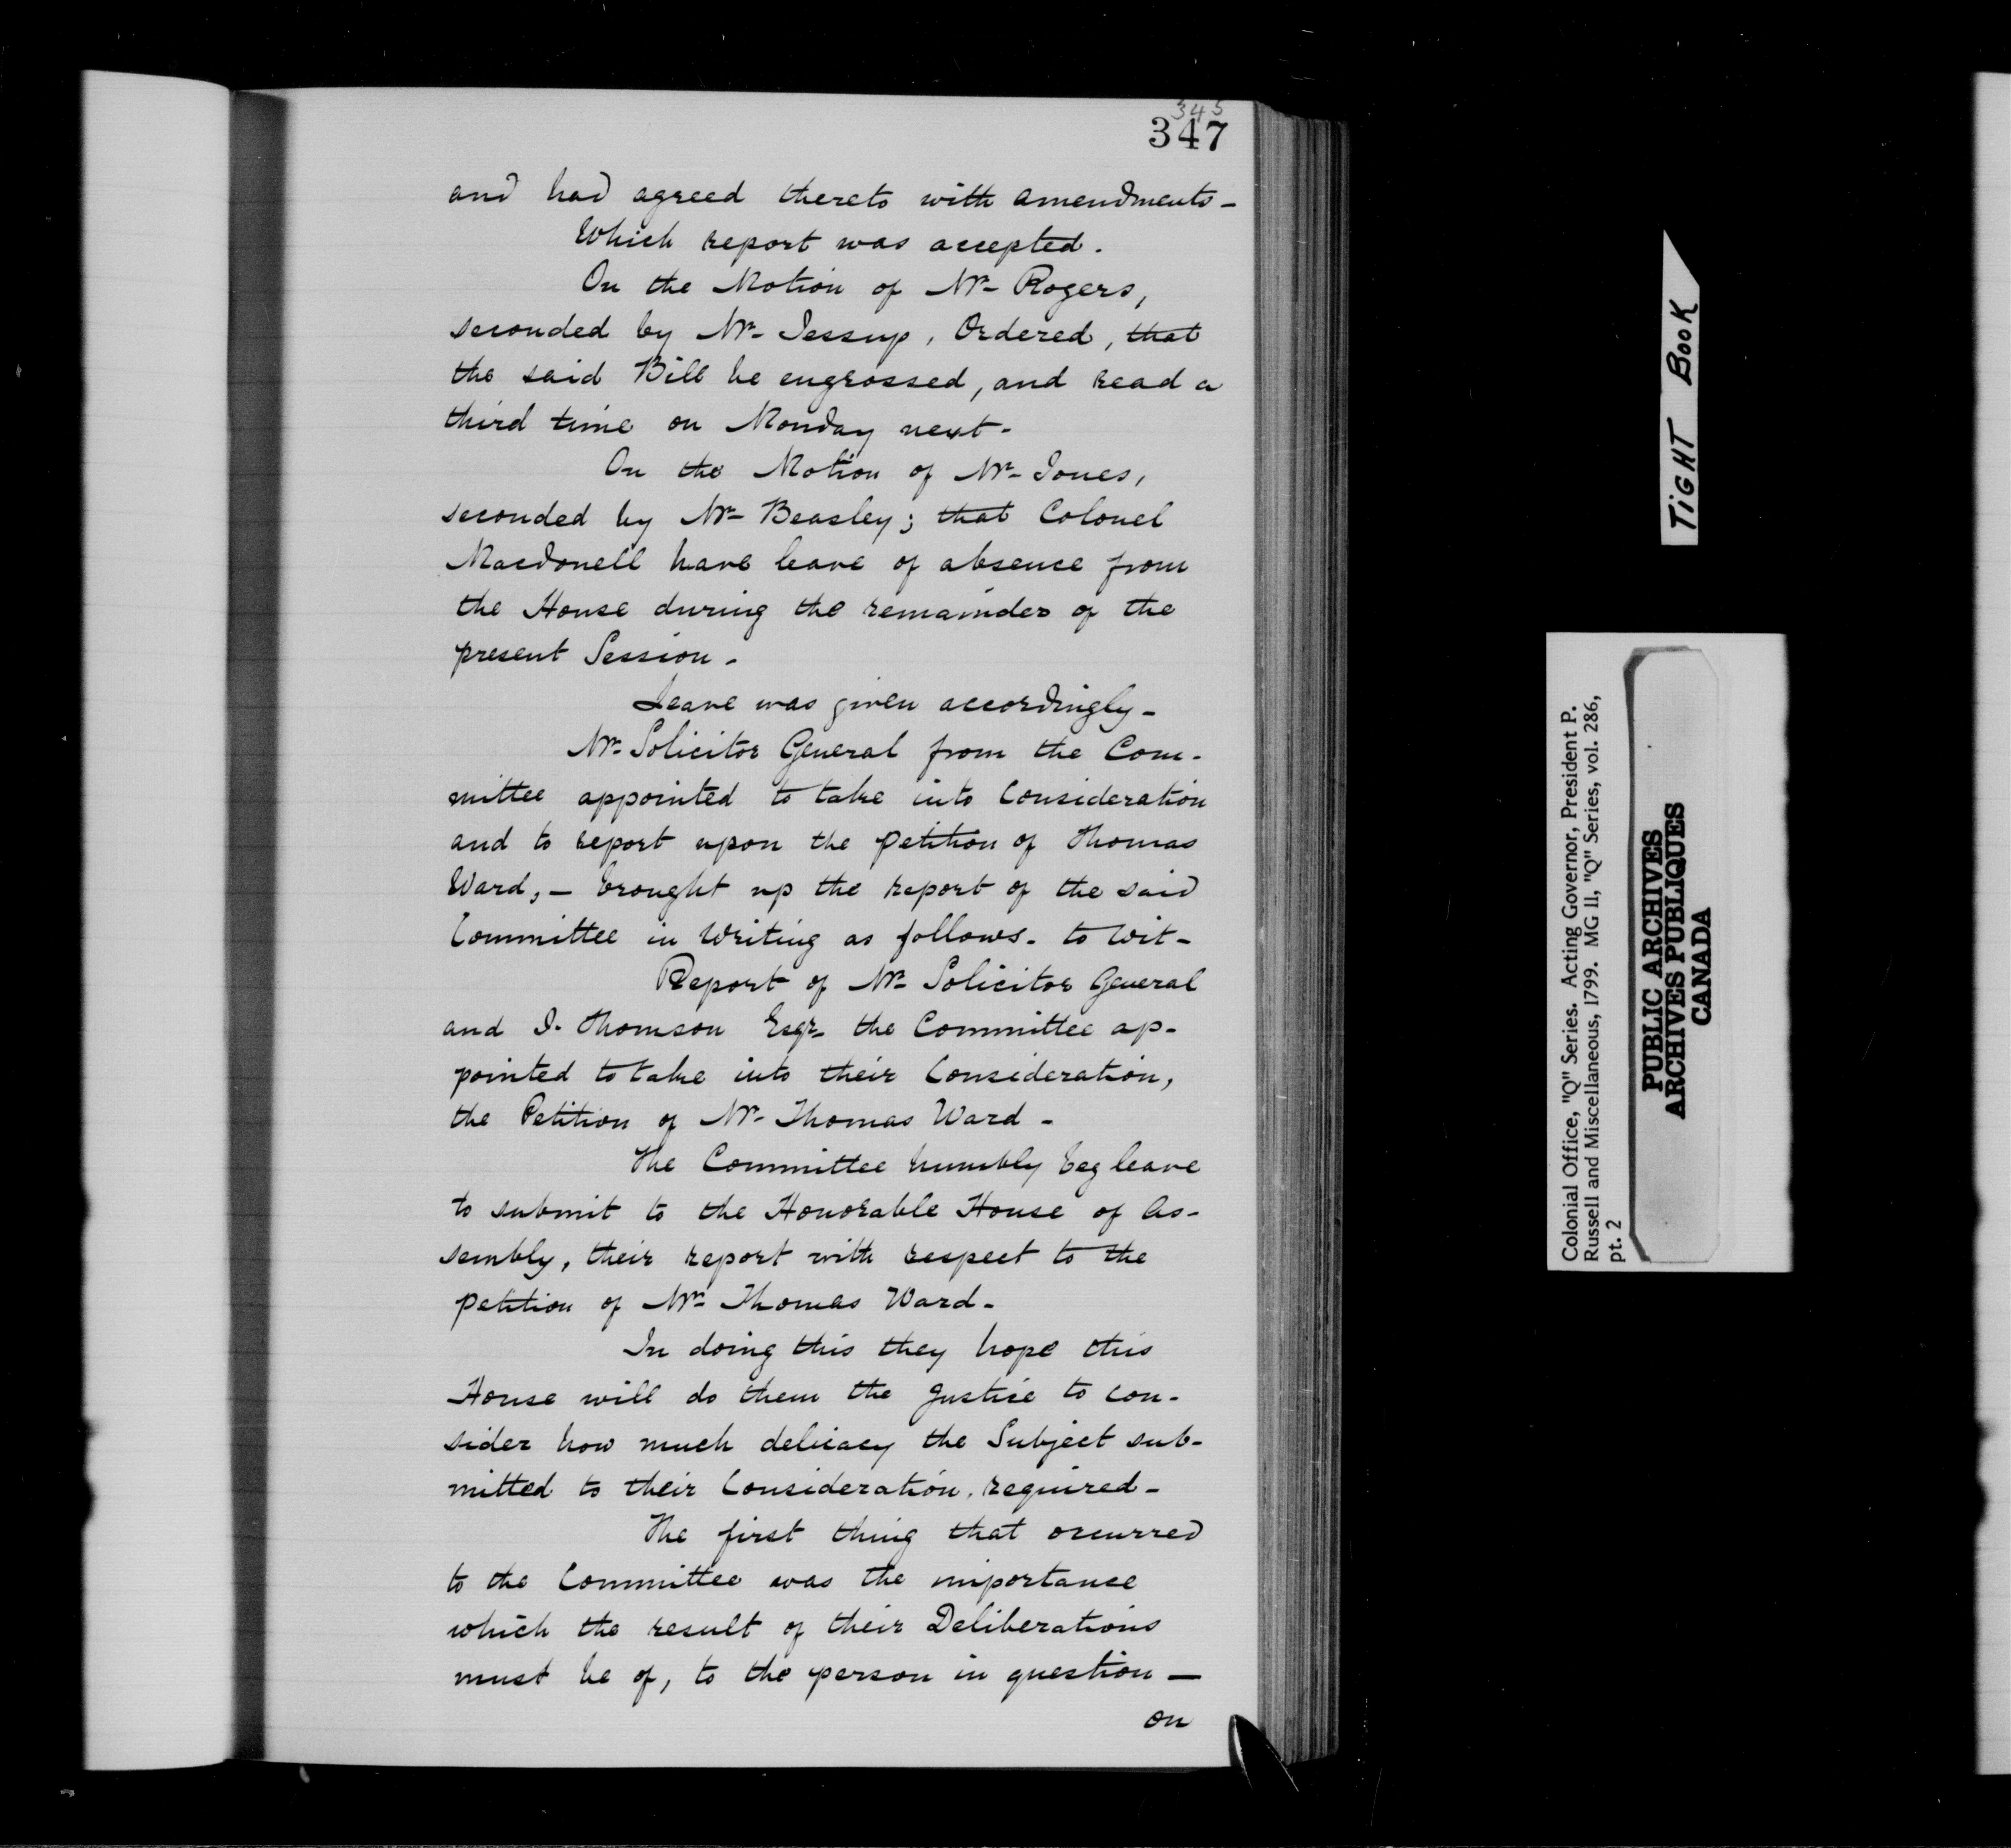 345
347
and had agreed thereto with amendments-
Which report was accepted.
On the Motion of Mr- Rogers,
seconded by Mr- Jessup, Ordered, that
the said Bill be engrossed, and read a
third time on Monday next-
On the Motion of Mr- Jones,
seconded by Mr- Beasley; that Colonel
Macdonell have leave of absence from
the House during the remainder of the
present Session-
Leave was given accordingly-
Mr- Solicitor General from the Com-
mittee appointed to take into Consideration
and to report upon the petition of Thomas
Ward,- brought up the report of the said
Committee in Writing as follows- to wit-
Report of Mr- Solicitor General
and D. Thomson Esqr- the Committee ap-
pointed to take into their Consideration,
the Petition of Mr- Thomas Ward-
The Committee humbly beg leave
to submit to the Honorable House of As-
sembly, their report with respect to the
petition of Mr- Thomas Ward-
In doing this they hope this
House will do them the Justice to con-
sider how much delicacy the Subject sub-
mitted to their Consideration, required-
The first thing that occurred
to the Committee was the importance
which the result of their Deliberations
must be of, to the person in question-
on
TIGHT BOOK
Colonial Office, "Q" Series. Acting Governor, President P.
Russell and Miscellaneous, 1799. MG 11, "Q" Series, vol. 286,
pt. 2
PUBLIC ARCHIVES
ARCHIVES PUBLIQUES
CANADA